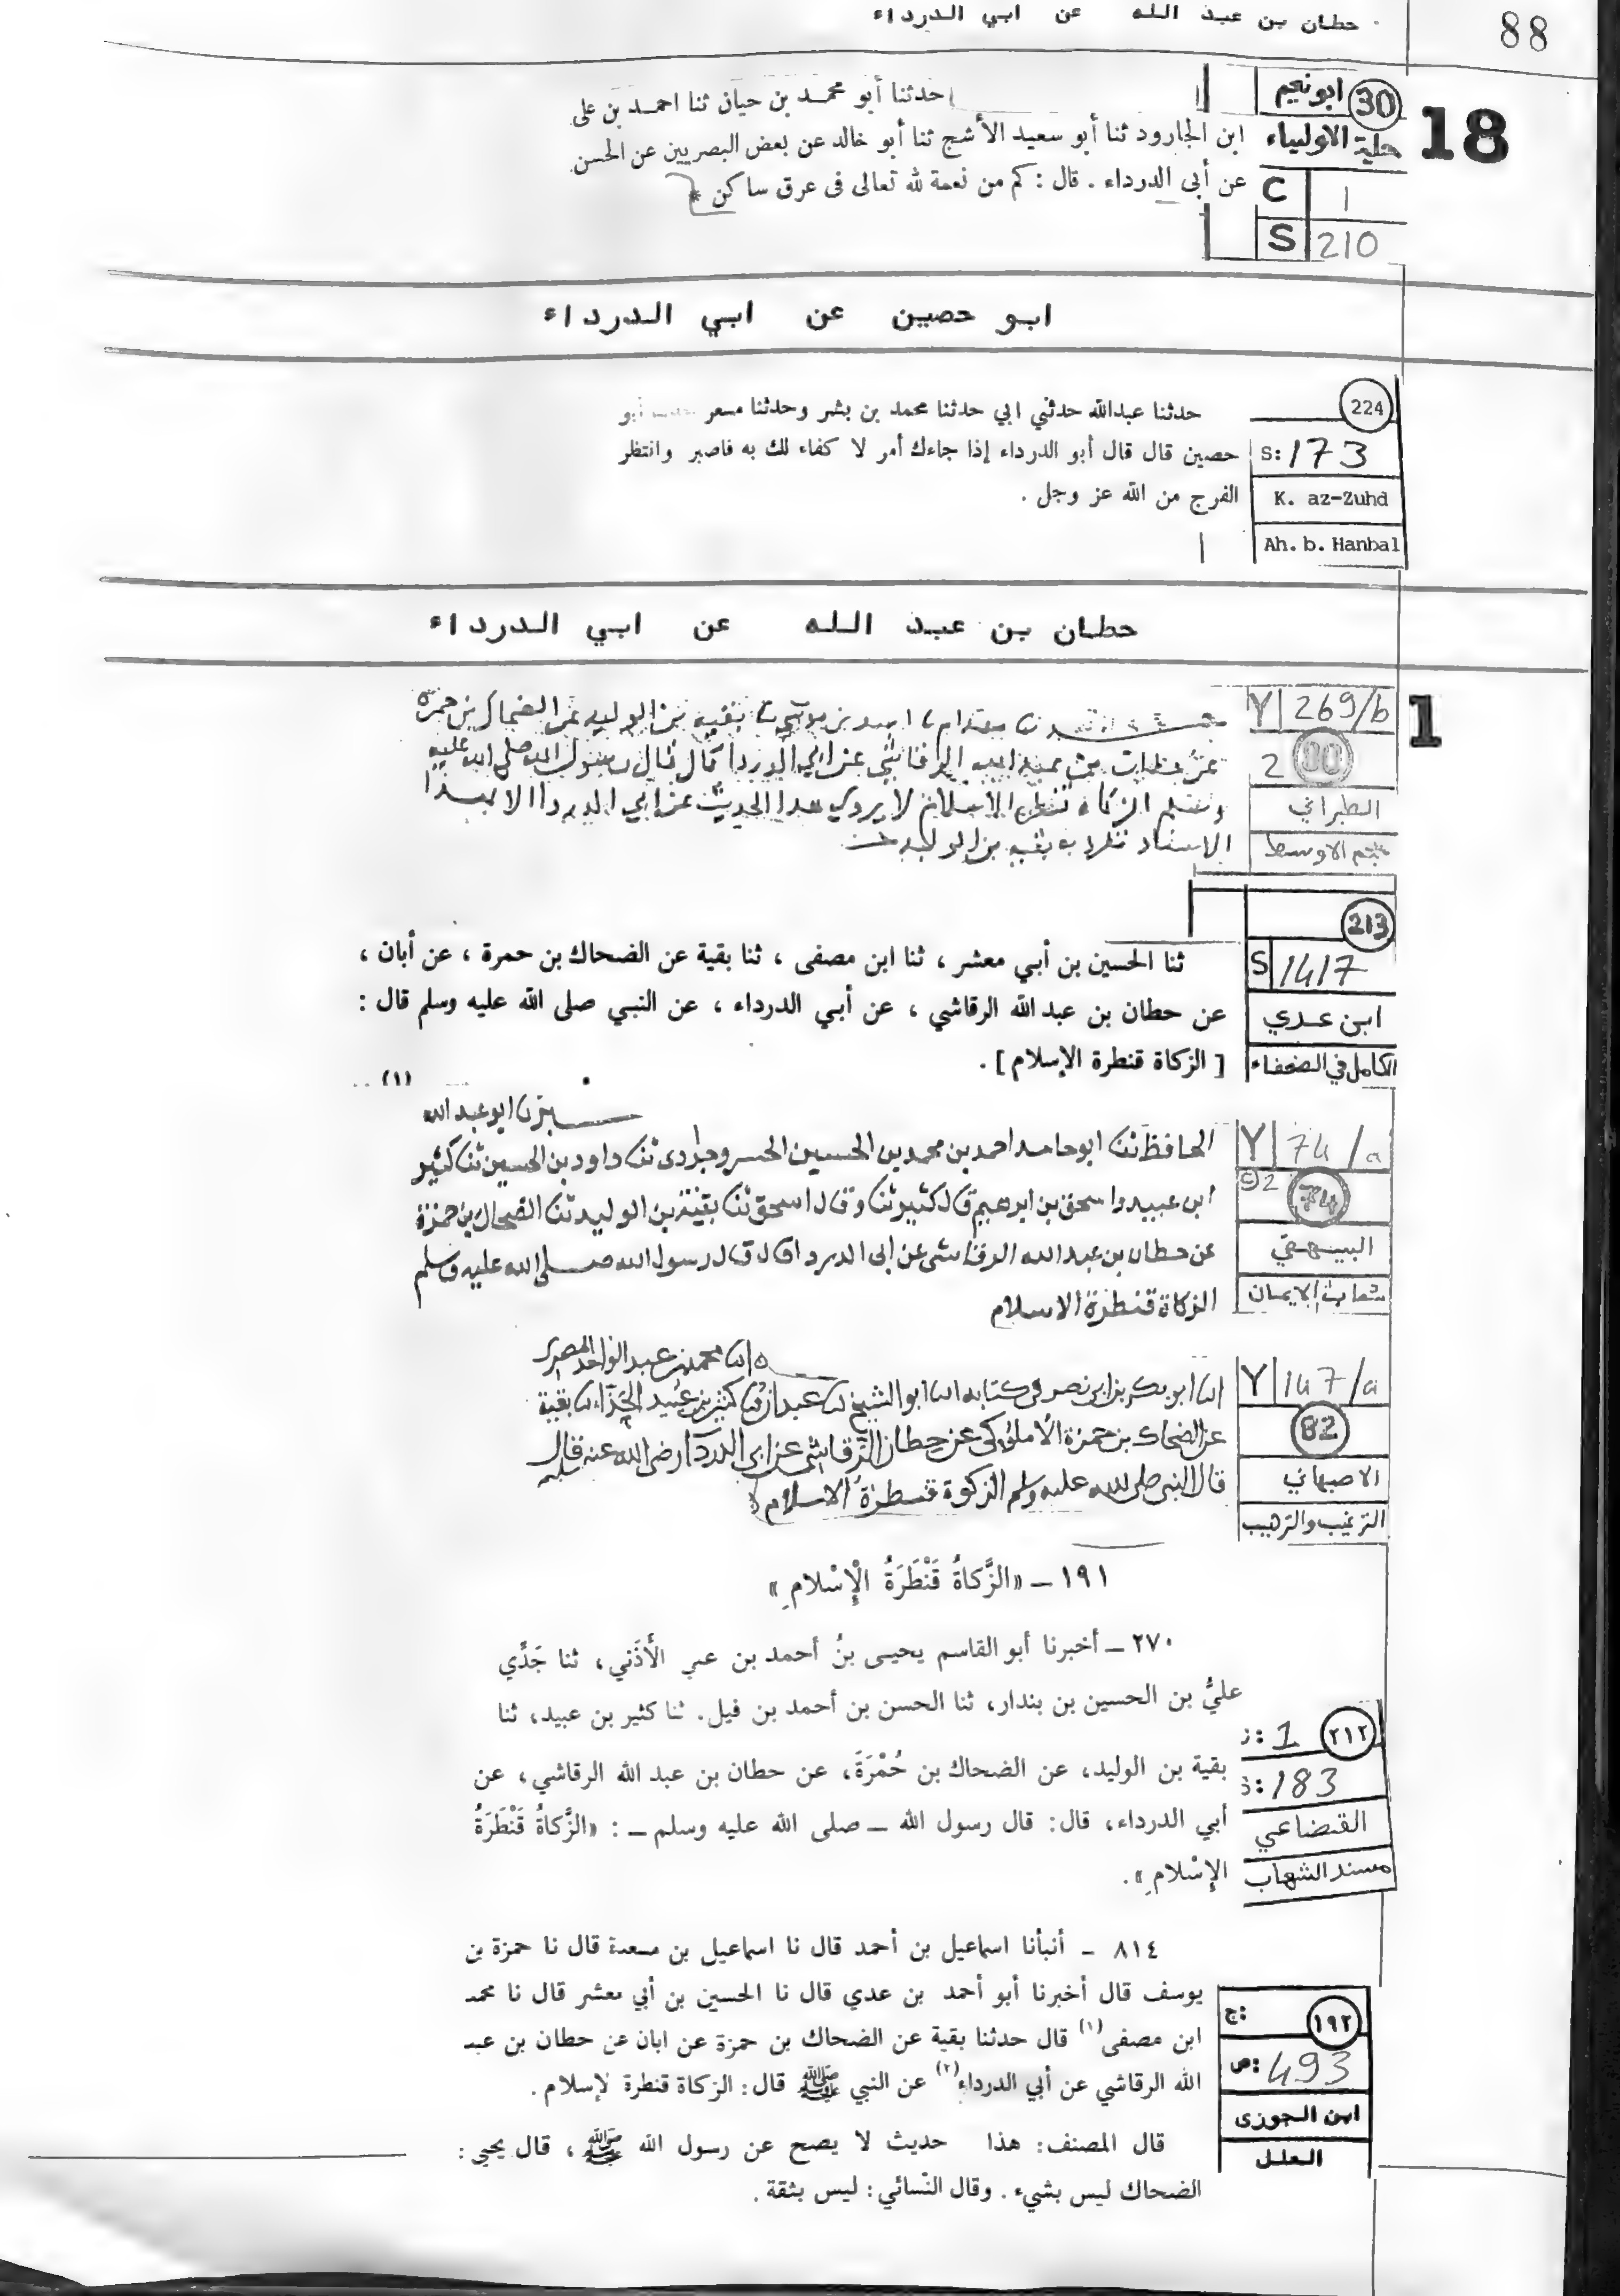 88
حطان بن عبد الله عن ابي الدرداء
18
30
ابو نعيم
حلية الاولياء
C 1
S 210
حدثنا أبو محمد بن حيان ثنا احمد بن على
ابن الجارود ثنا أبو سعيد الأشج ثنا أبو خالد عن بعض البصريين عن الحسن
عن أبى الدرداء . قال : كم من نعمة لله تعالى فى عرق ساكن *
ابو حصين عن ابي الدرداء
224
S: 173
K. az-Zuhd
Ah. b. Hanbal
حدثنا عبدالله حدثني ابي حدثنا محمد بن بشر وحدثنا مسعر أبو
حصين قال قال أبو الدرداء إذا جاءك أمر لا كفاء لك به فاصبر وانتظر
الفرج من الله عز وجل .
حطان بن عبد الله عن ابي الدرداء
1
Y 269/b
2
الطبراني
معجم الاوسط
بقيه بن الوليد عن الضحاك بن حمرة
عن حطان بن عبد الله الرقاشي عن ابي الدرداء قال قال رسول الله صلى الله عليه
وسلم الزكاه قنطرة الاسلام لا يروي هذا الحديث عن ابي الدرداء الا بهذا
الاسناد تفرد به بقيه بن الوليد
213
S 1417
ابن عدي
الكامل في الضعفاء
ثنا الحسين بن أبي معشر ، ثنا ابن مصفى ، ثنا بقية عن الضحاك بن حمرة ، عن أبان ،
عن حطان بن عبد الله الرقاشي ، عن أبي الدرداء ، عن النبي صلى الله عليه وسلم قال :
[ الزكاة قنطرة الإسلام ] .
(١)
Y 74/a
2
74
البيهقي
شعاب الايمان
ابو عبد الله
الحافظ ثنا ابو حامد احمد بن محمد بن الحسين الخسروجردى ثنا داود بن الحسين ثنا كثير
ابن عبيد واسحق بن ابرهيم قال كثير ثنا وقال اسحق ثنا بقية بن الوليد ثنا الضحاك بن حمزة
عن حطان بن عبد الله الرقاشى عن ابى الدرداء قال قال رسول الله صلى الله عليه وسلم
الزكاة قنطرة الاسلام
Y 147/a
82
الاصبهاني
الترغيب والترهيب
محمد بن عبد الواحد المصري
انا ابو بكر بن ابي نصر في كتابه انا ابو الشيخ نا عبدان نا كثير بن عبيد الحذاء نا بقية
عن الضحاك بن حمزة الاملوكي عن حطان الرقاشي عن ابي الدرداء رضي الله عنه قال
قال النبي صلى الله عليه وسلم الزكوة قنطرة الاسلام
١٩١ – «الزَّكاةُ قَنْطَرَةُ الْإِسْلامِ»
٢٧٠ – أخبرنا أبو القاسم يحيى بنُ أحمد بن علي الأَذَني، ثنا جَدِّي
عليُّ بن الحسين بن بندار، ثنا الحسن بن أحمد بن فيل. ثنا كثير بن عبيد، ثنا
بقية بن الوليد، عن الضحاك بن حُمْرَةَ، عن حطان بن عبد الله الرقاشي، عن
أبي الدرداء، قال: قال رسول الله – صلى الله عليه وسلم – : «الزَّكاةُ قَنْطَرَةُ
الإِسْلامِ».
٢١٢
: 1
: 183
القضاعي
مسند الشهاب
٨١٤ – أنبأنا اسماعيل بن أحمد قال نا اسماعيل بن مسعدة قال نا حمزة بن
يوسف قال أخبرنا أبو أحمد بن عدي قال نا الحسين بن أبي معشر قال نا محمد
ابن مصفى(١) قال حدثنا بقية عن الضحاك بن حمزة عن ابان عن حطان بن عبد
الله الرقاشي عن أبي الدرداء(٢) عن النبي ﷺ قال: الزكاة قنطرة لإسلام .
قال المصنف: هذا حديث لا يصح عن رسول الله ﷺ ، قال يحيى :
الضحاك ليس بشيء . وقال النسائي : ليس بثقة .
ج:
١٩٢
ص: 493
ابن الجوزى
العلل